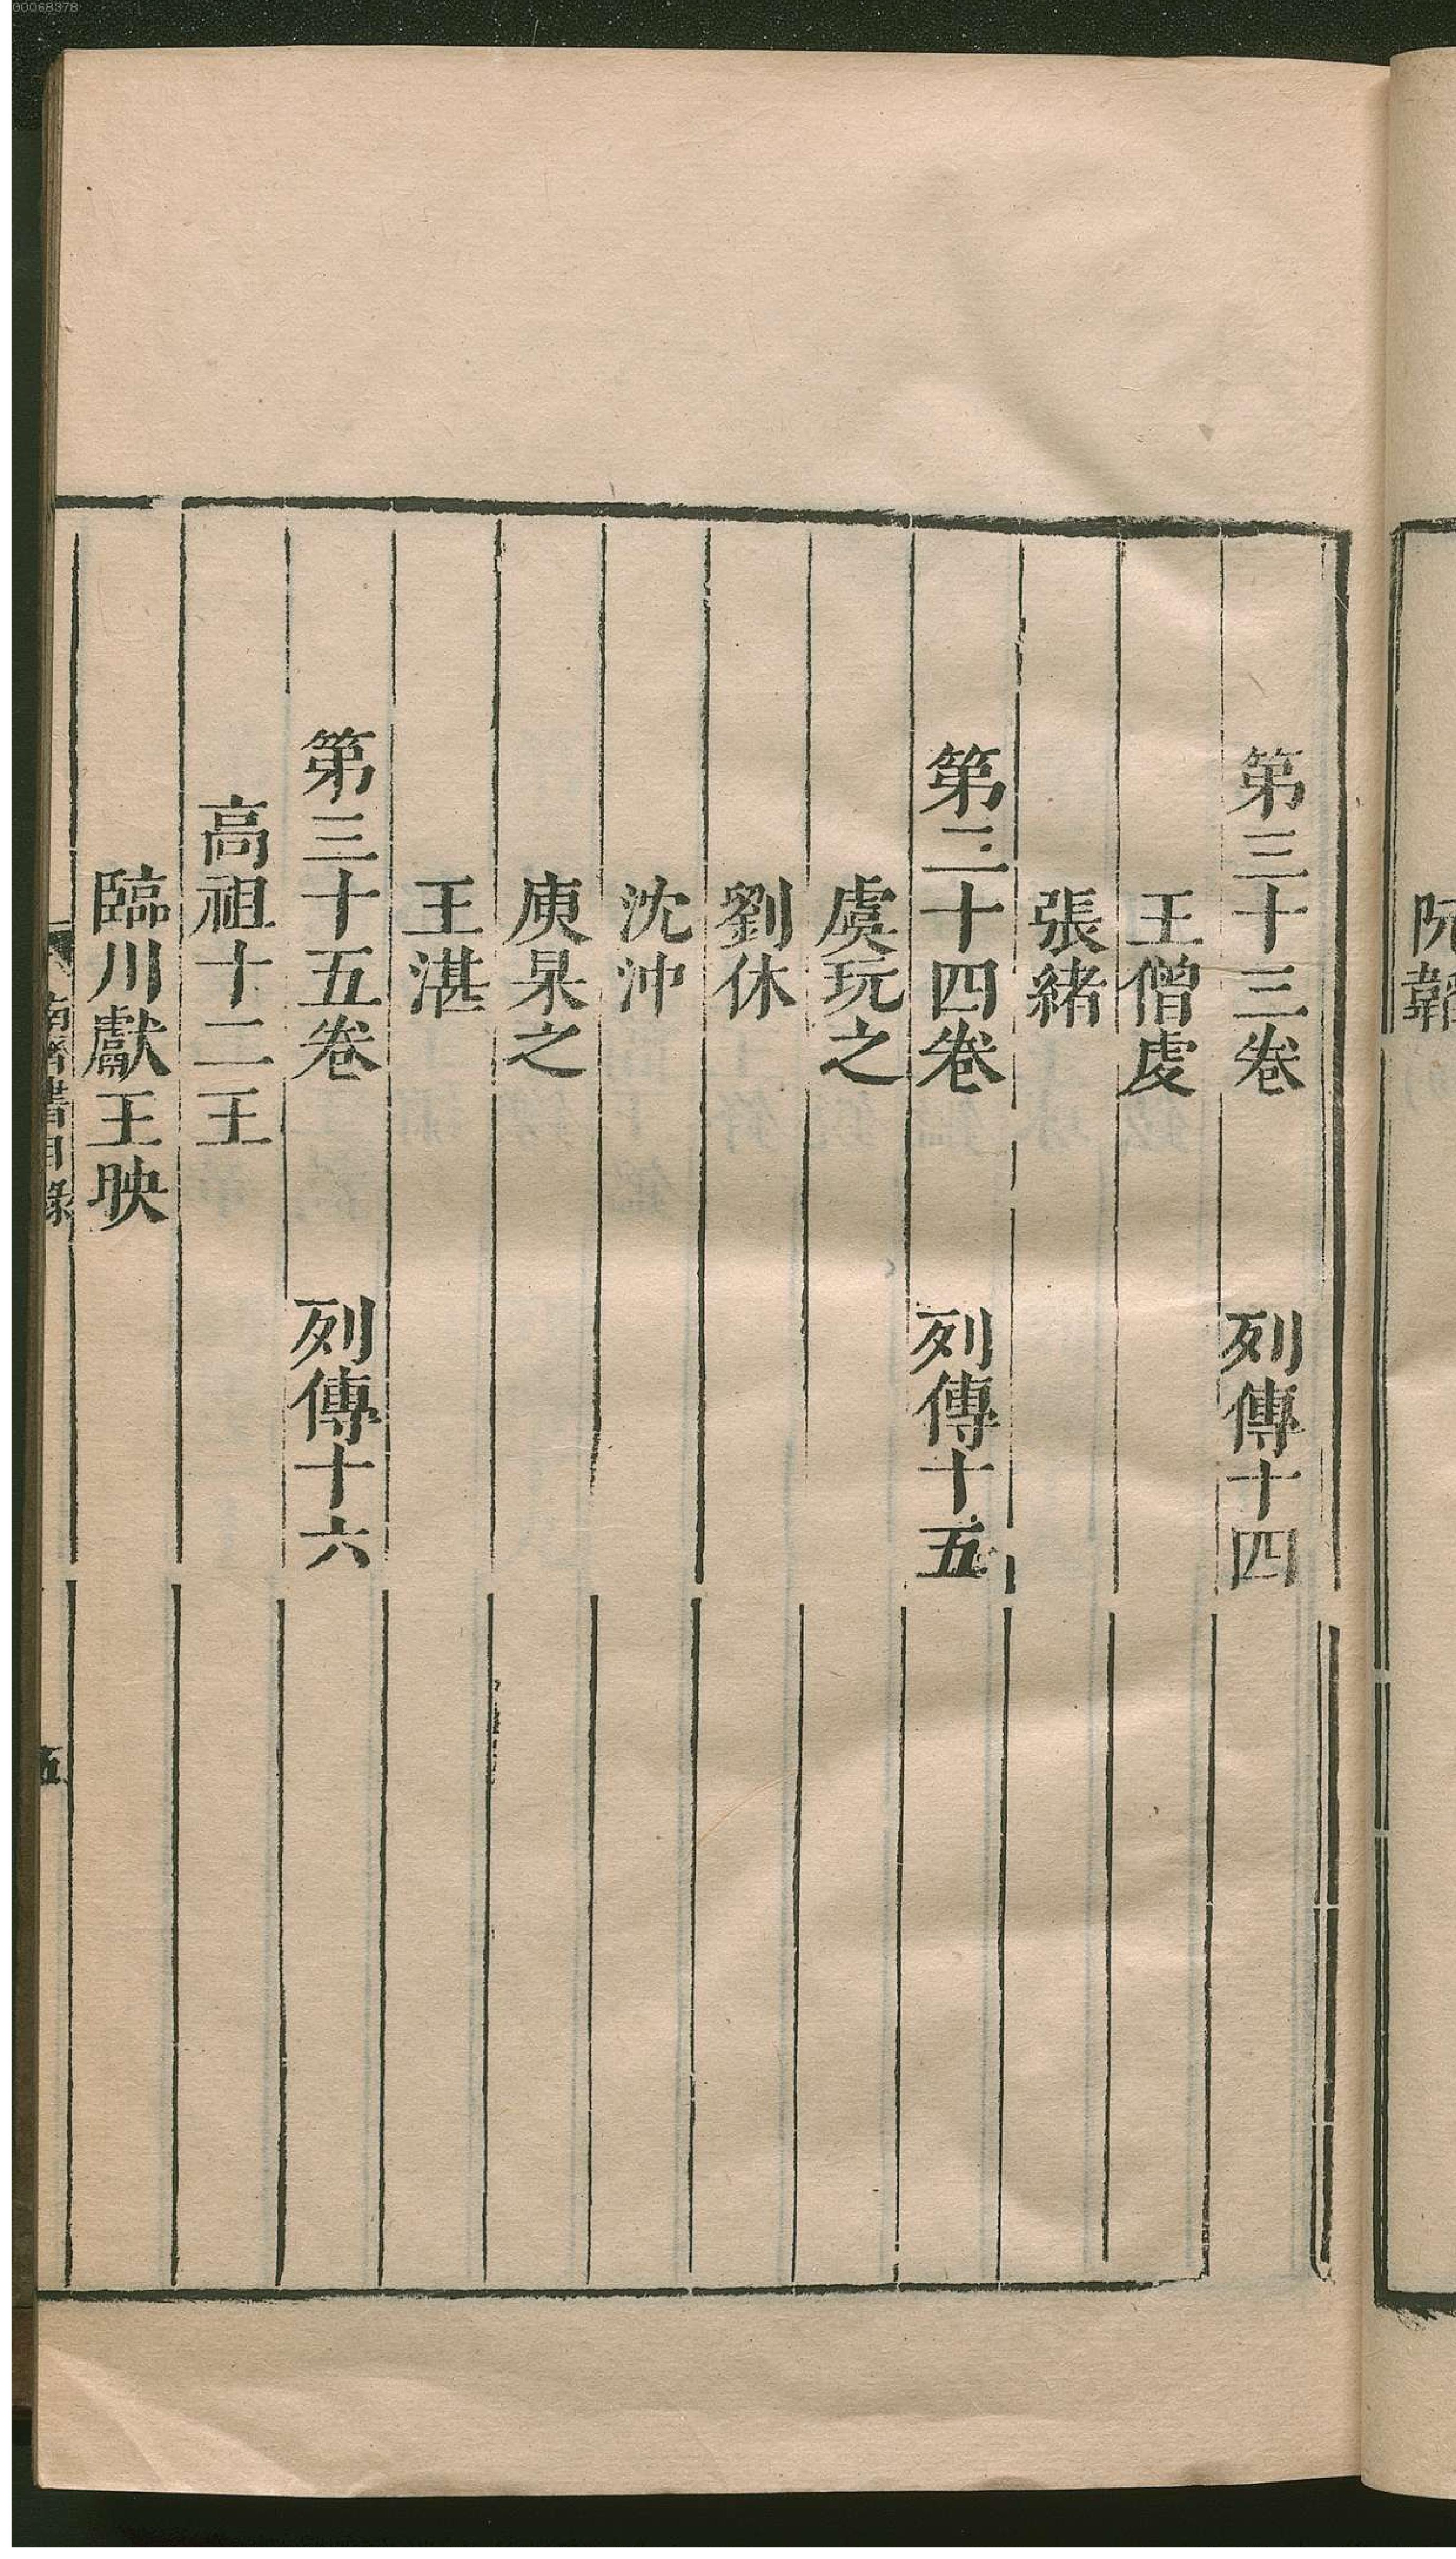 00068378
第三十三卷 列傳十四
王僧虔
張緒
第三十四卷 列傳十五
虞玩之
劉休
沈沖
庾杲之
王湛
第三十五卷 列傳十六
高祖十二王
臨川獻王映
南齊書目錄 五